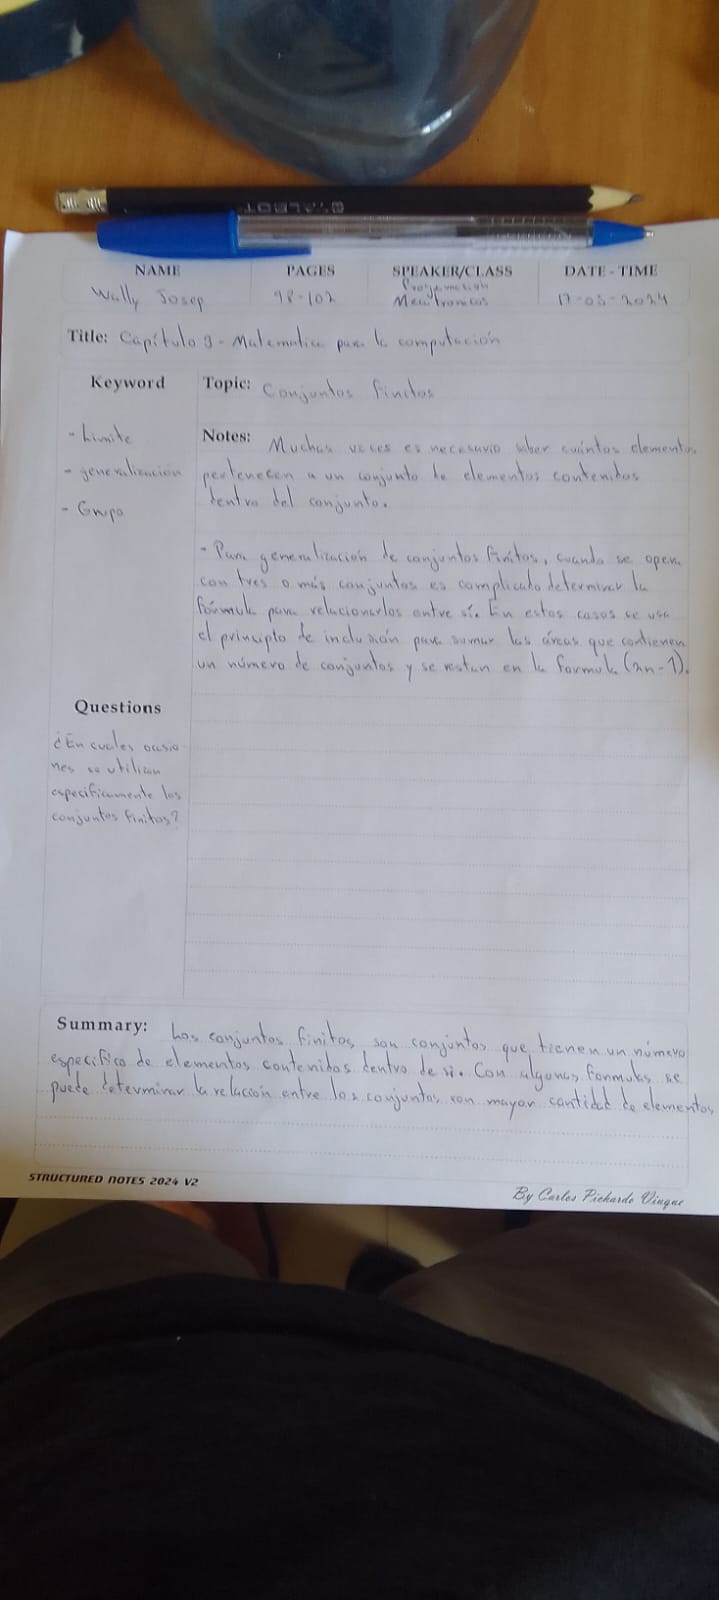 NAME PAGES SPEAKER/CLASS DATE - TIME
Wally Josep 98-102 Programación Mecatronicos 17-05-2024
Title: Capítulo 3 - Matematica para la computación
Keyword
- Limite
- generalización
- Grupo
Topic: Conjuntos finitos
Notes: Muchas veces es necesario saber cuántos elementos
pertenecen a un conjunto de elementos contenidos
dentro del conjunto.
- Para generalización de conjuntos finitos, cuando se opera
con tres o más conjuntos es complicado determinar la
fórmula para relacionarlos entre sí. En estos casos se usa
el principio de inclusión para sumar las áreas que contienen
un número de conjuntos y se restan en la formula (2n-1).
Questions
¿En cuales ocasio
nes se utilizan
especificamente los
conjuntos finitos?
Summary: Los conjuntos finitos son conjuntos que tienen un número
especifico de elementos contenidos dentro de si. Con algunas formulas se
puede determinar la relación entre los conjuntos con mayor cantidad de elementos
STRUCTURED NOTES 2024 V2
By Carlos Pichardo Viuque